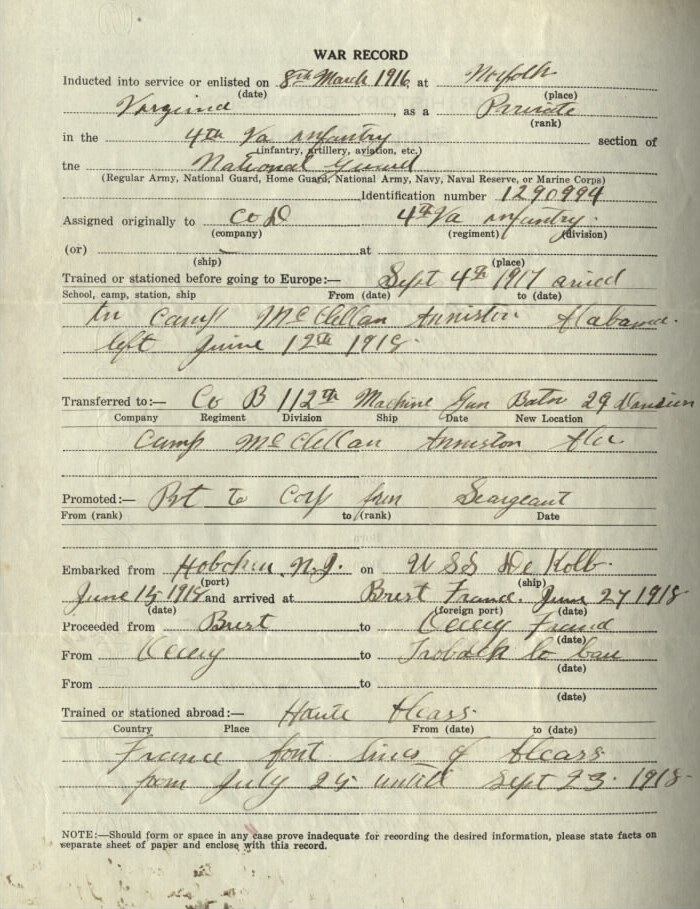 WAR RECORD
Inducted into service or enlisted on 8th March 1916 at Norfolk
(date) (place)
Virginia as a Private
(rank)
in the 4th Va infantry section of
(infantry, artillery, aviation, etc.)
the National Guard
(Regular Army, National Guard, Home Guard, National Army, Navy, Naval Reserve, or Marine Corps)
Identification number 1290994
Assigned originally to Co D 4th Va infantry.
(company) (regiment) (division)
(or) at
(ship) (place)
Trained or stationed before going to Europe:— Sept 4th 1917
School, camp, station, ship From (date) to (date)
Camp McClellan Anniston Alabama.
left June 12th 1918.
Transferred to:— Co B 112th Machine Gun Batn 29 Division
Company Regiment Division Ship Date New Location
Camp McClellan Anniston Ala
Promoted:— Pvt to Corp Seargeant
From (rank) to (rank) Date
Embarked from Hoboken N.J. on U S S De Kolb.
(port) (ship)
June 15 1918 and arrived at Brest France. June 27 1918
(date) (foreign port) (date)
Proceeded from Brest to France
(date)
From to
(date)
From to
(date)
Trained or stationed abroad:— Haute Alcass
Country Place From (date) to (date)
France font lines of Alcass
from July 25 until Sept 23. 1918
NOTE:—Should form or space in any case prove inadequate for recording the desired information, please state facts on
separate sheet of paper and enclose with this record.